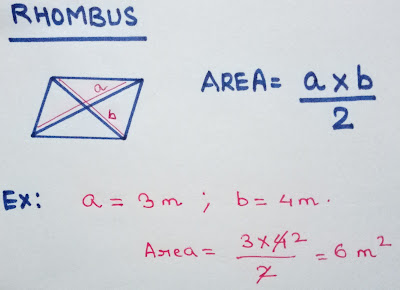 RHOMBUS
a
b
AREA= a x b / 2
Ex: a = 3 m ; b = 4 m.
Area = 3 x 4 2 / 2 = 6 m²